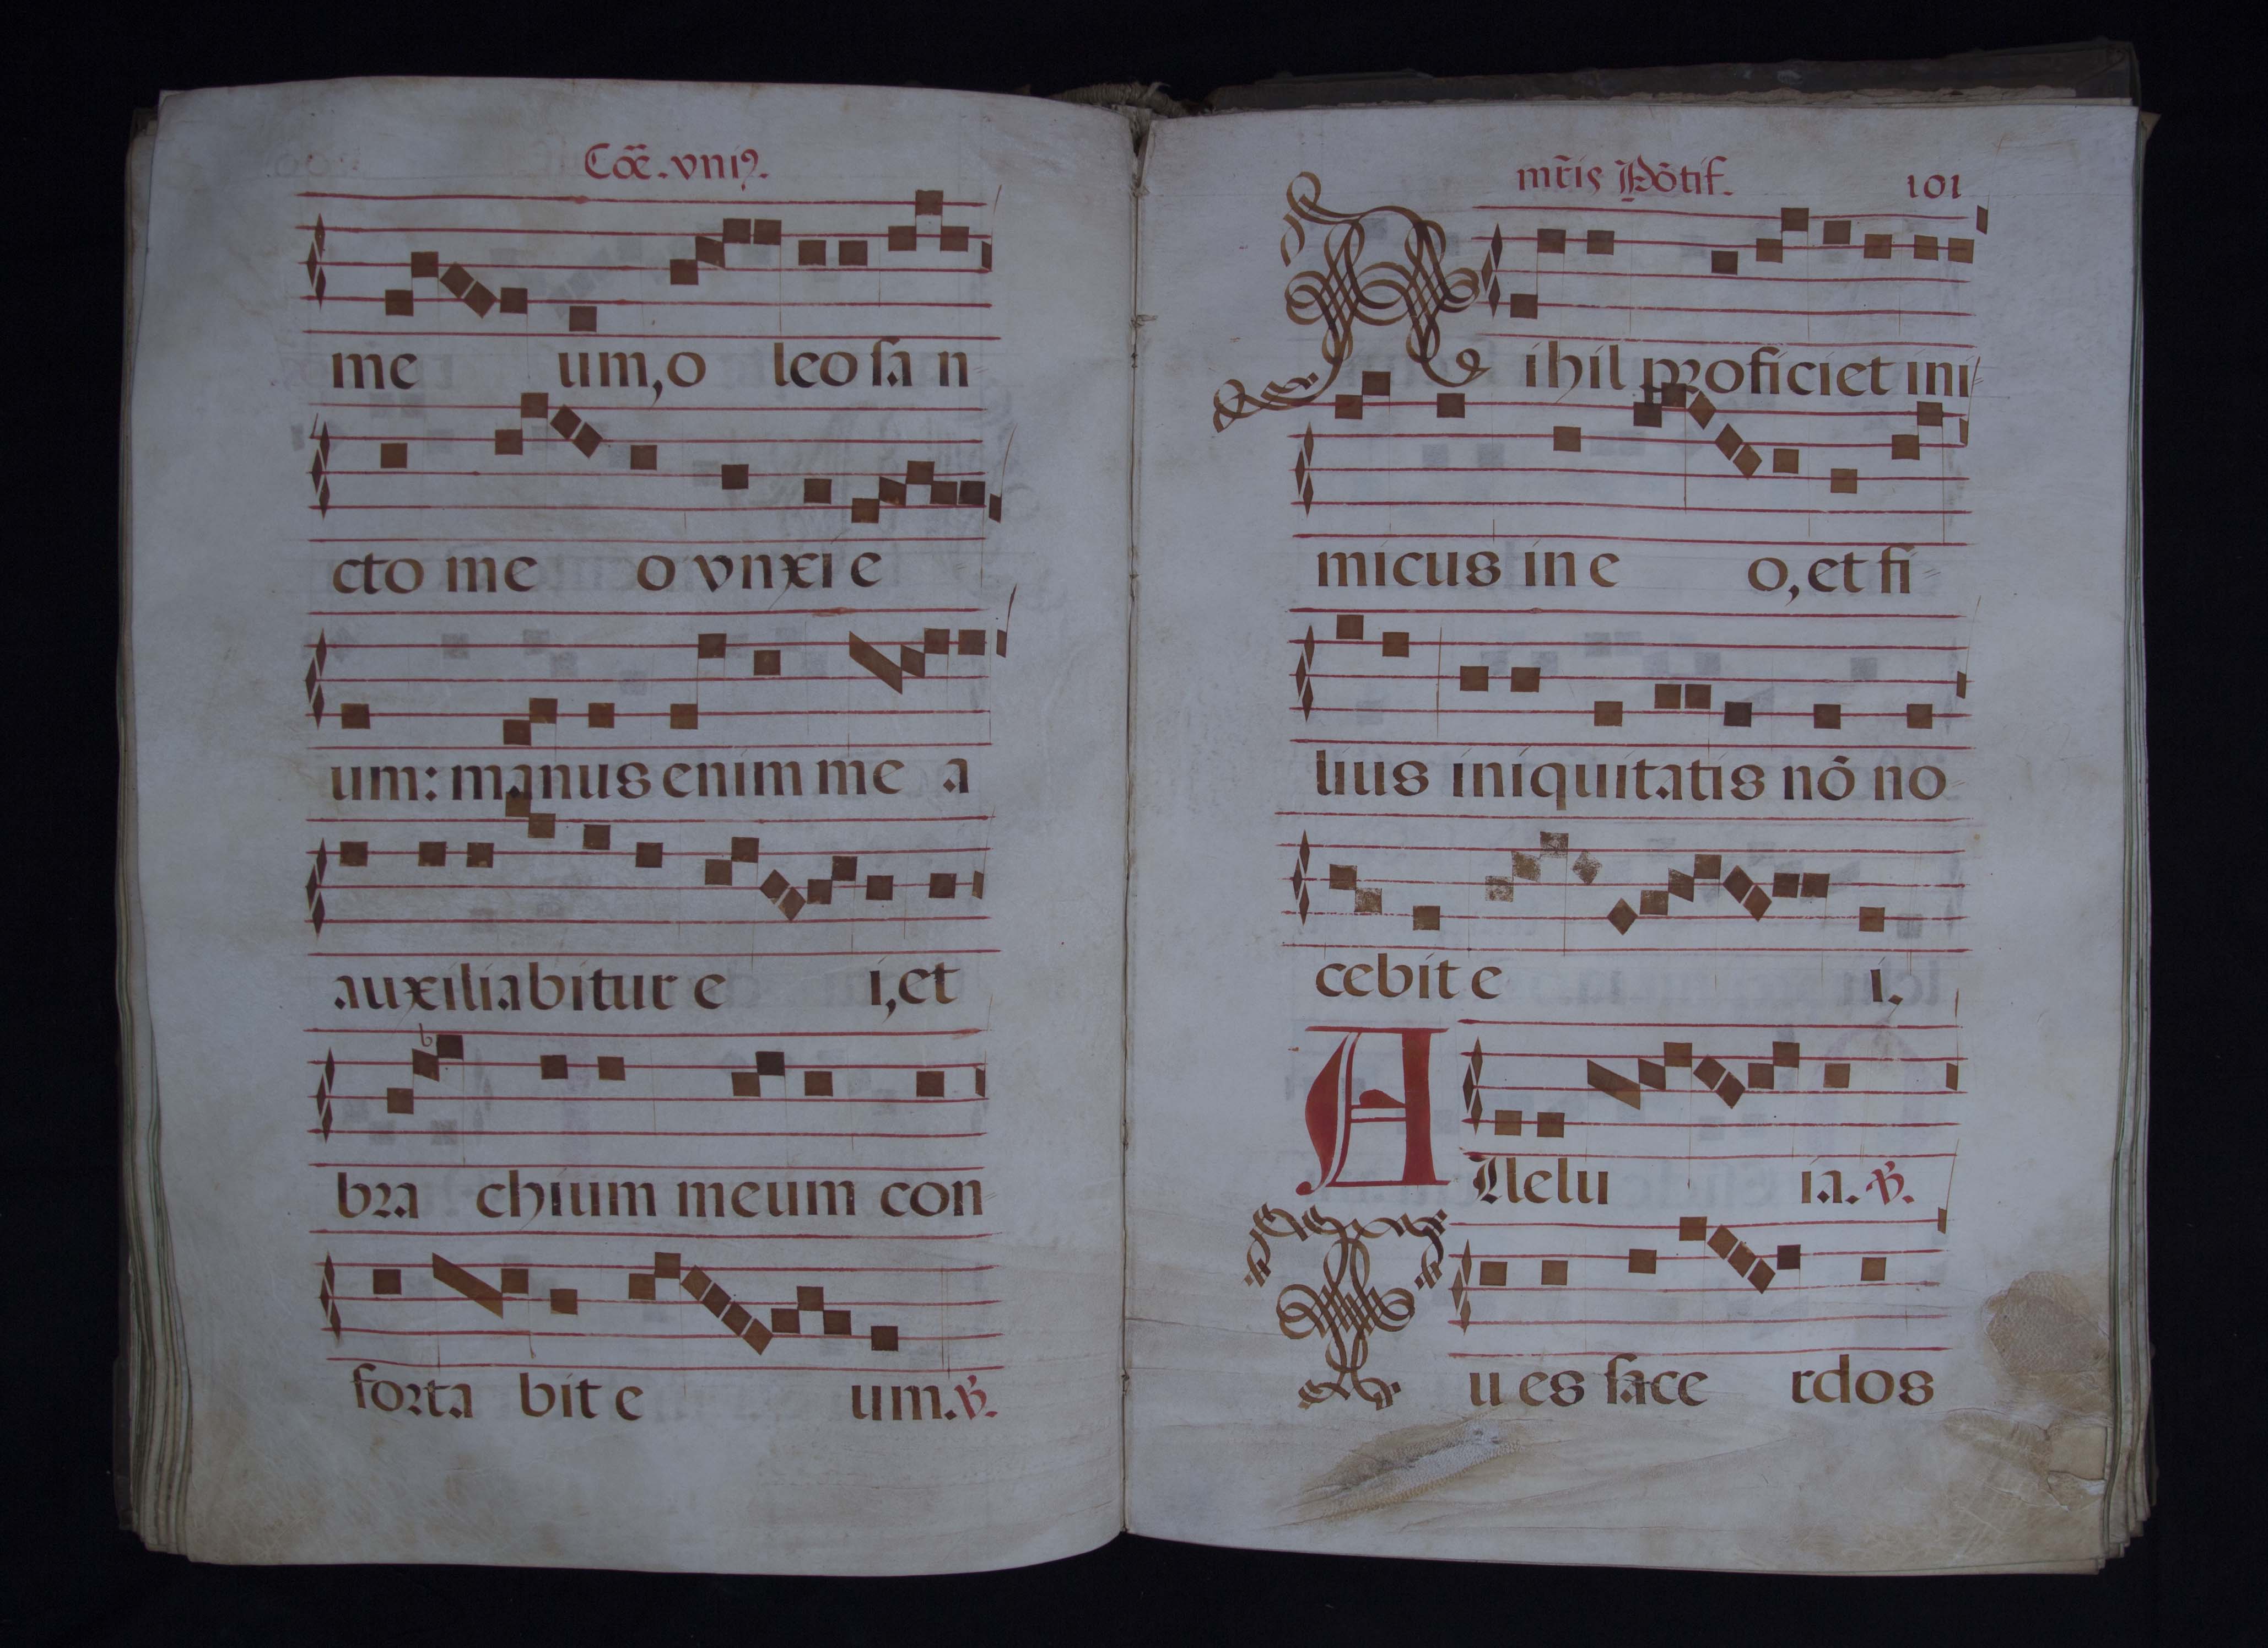 Cõẽ. vniꝰ.
me um, o leo ſa n
cto me o vnxi e
um: manus enim me a
auxiliabitur e i, et
bra chium meum con
forta bit e um. ℣.
mr̃is Põtif. 101
N ihil proficiet ini
micus in e o, et fi
lius iniquitatis nõ no
cebit e i.
A llelu ia. ℣.
T u es ſace rdos